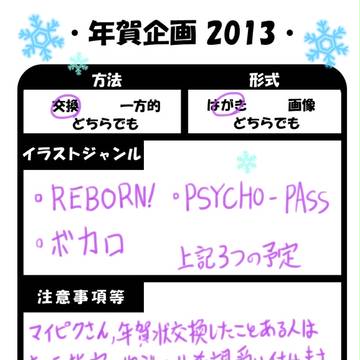 ・年賀企画 2013・
方法 形式
交換 一方的 はがき 画像
どちらでも どちらでも
イラストジャンル
・REBORN! ・PSYCHO-PASS
・ボカロ 上記3つの予定
注意事項等
マイピクさん,年賀状交換したことある人は